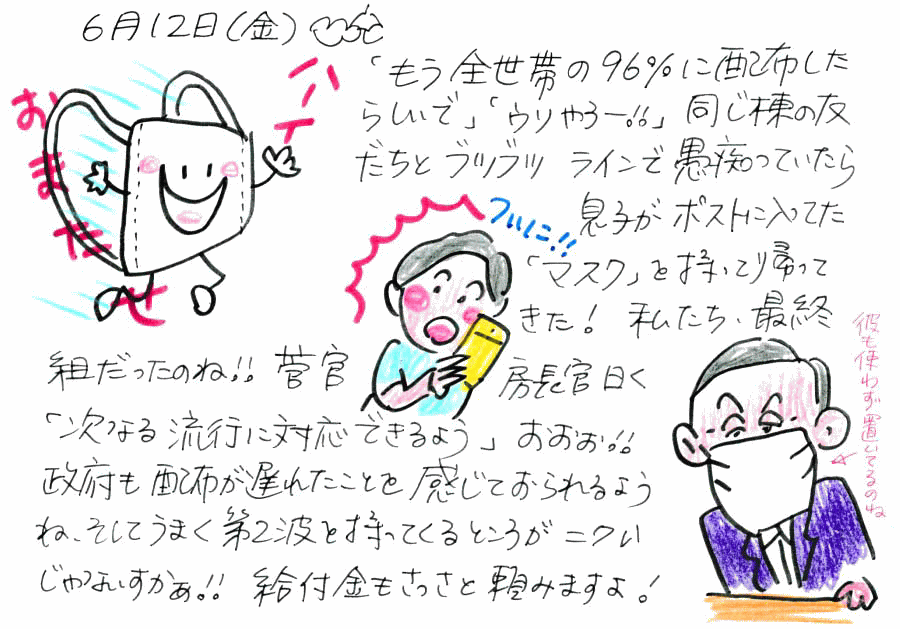 6月12日(金)
ハーイ
おまたせ
「もう全世帯の96%に配布した
らしいで」「ウソやろー!!」同じ棟の友
だちとブツブツ ラインで愚痴っていたら
息子がポストに入ってた
ついに!!
「マスク」を持って帰って
きた! 私たち、最終
組だったのね!! 菅官
房長官曰く
彼も使わず置いてるのね
「次なる流行に対応できるよう」おおお!!
政府も配布が遅れたことを感じておられるよう
ね、そしてうまく第2波を持ってくるところがニクい
じゃないすかぁ!! 給付金もさっさと頼みますよ!